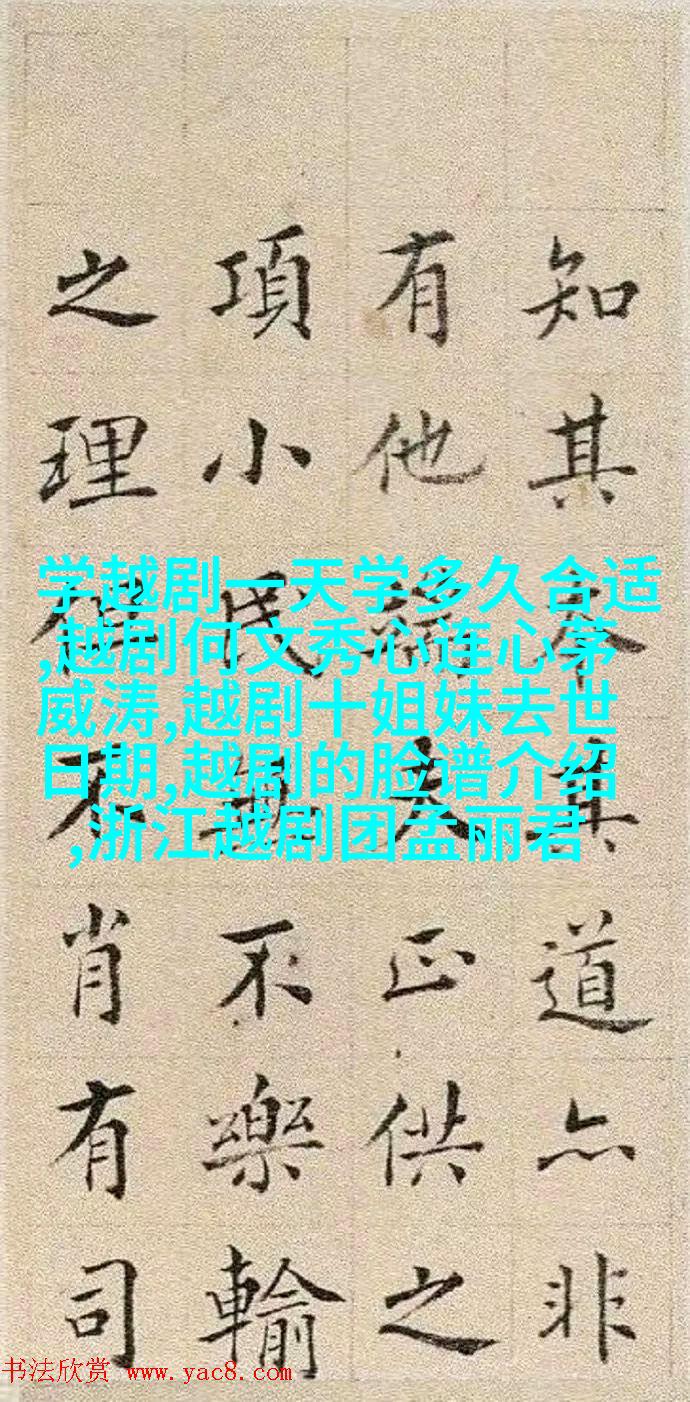 知其其道亦非
有他天正供之
項小民不樂輸
之理不肖有司
学越剧一天学多久合适
,越剧何文秀心连心茅
威涛,越剧十姐妹去世
日期,越剧的脸谱介绍
,浙江越剧团孟丽君
书法欣赏 www.yac8.com